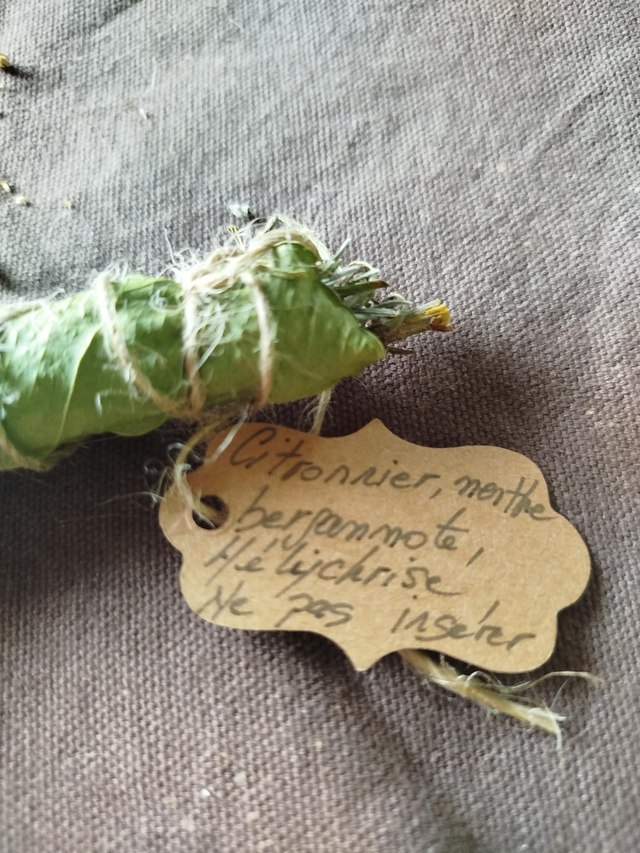 Citronnier, menthe
bergammote,
Hélychrise
Ne pas insérer